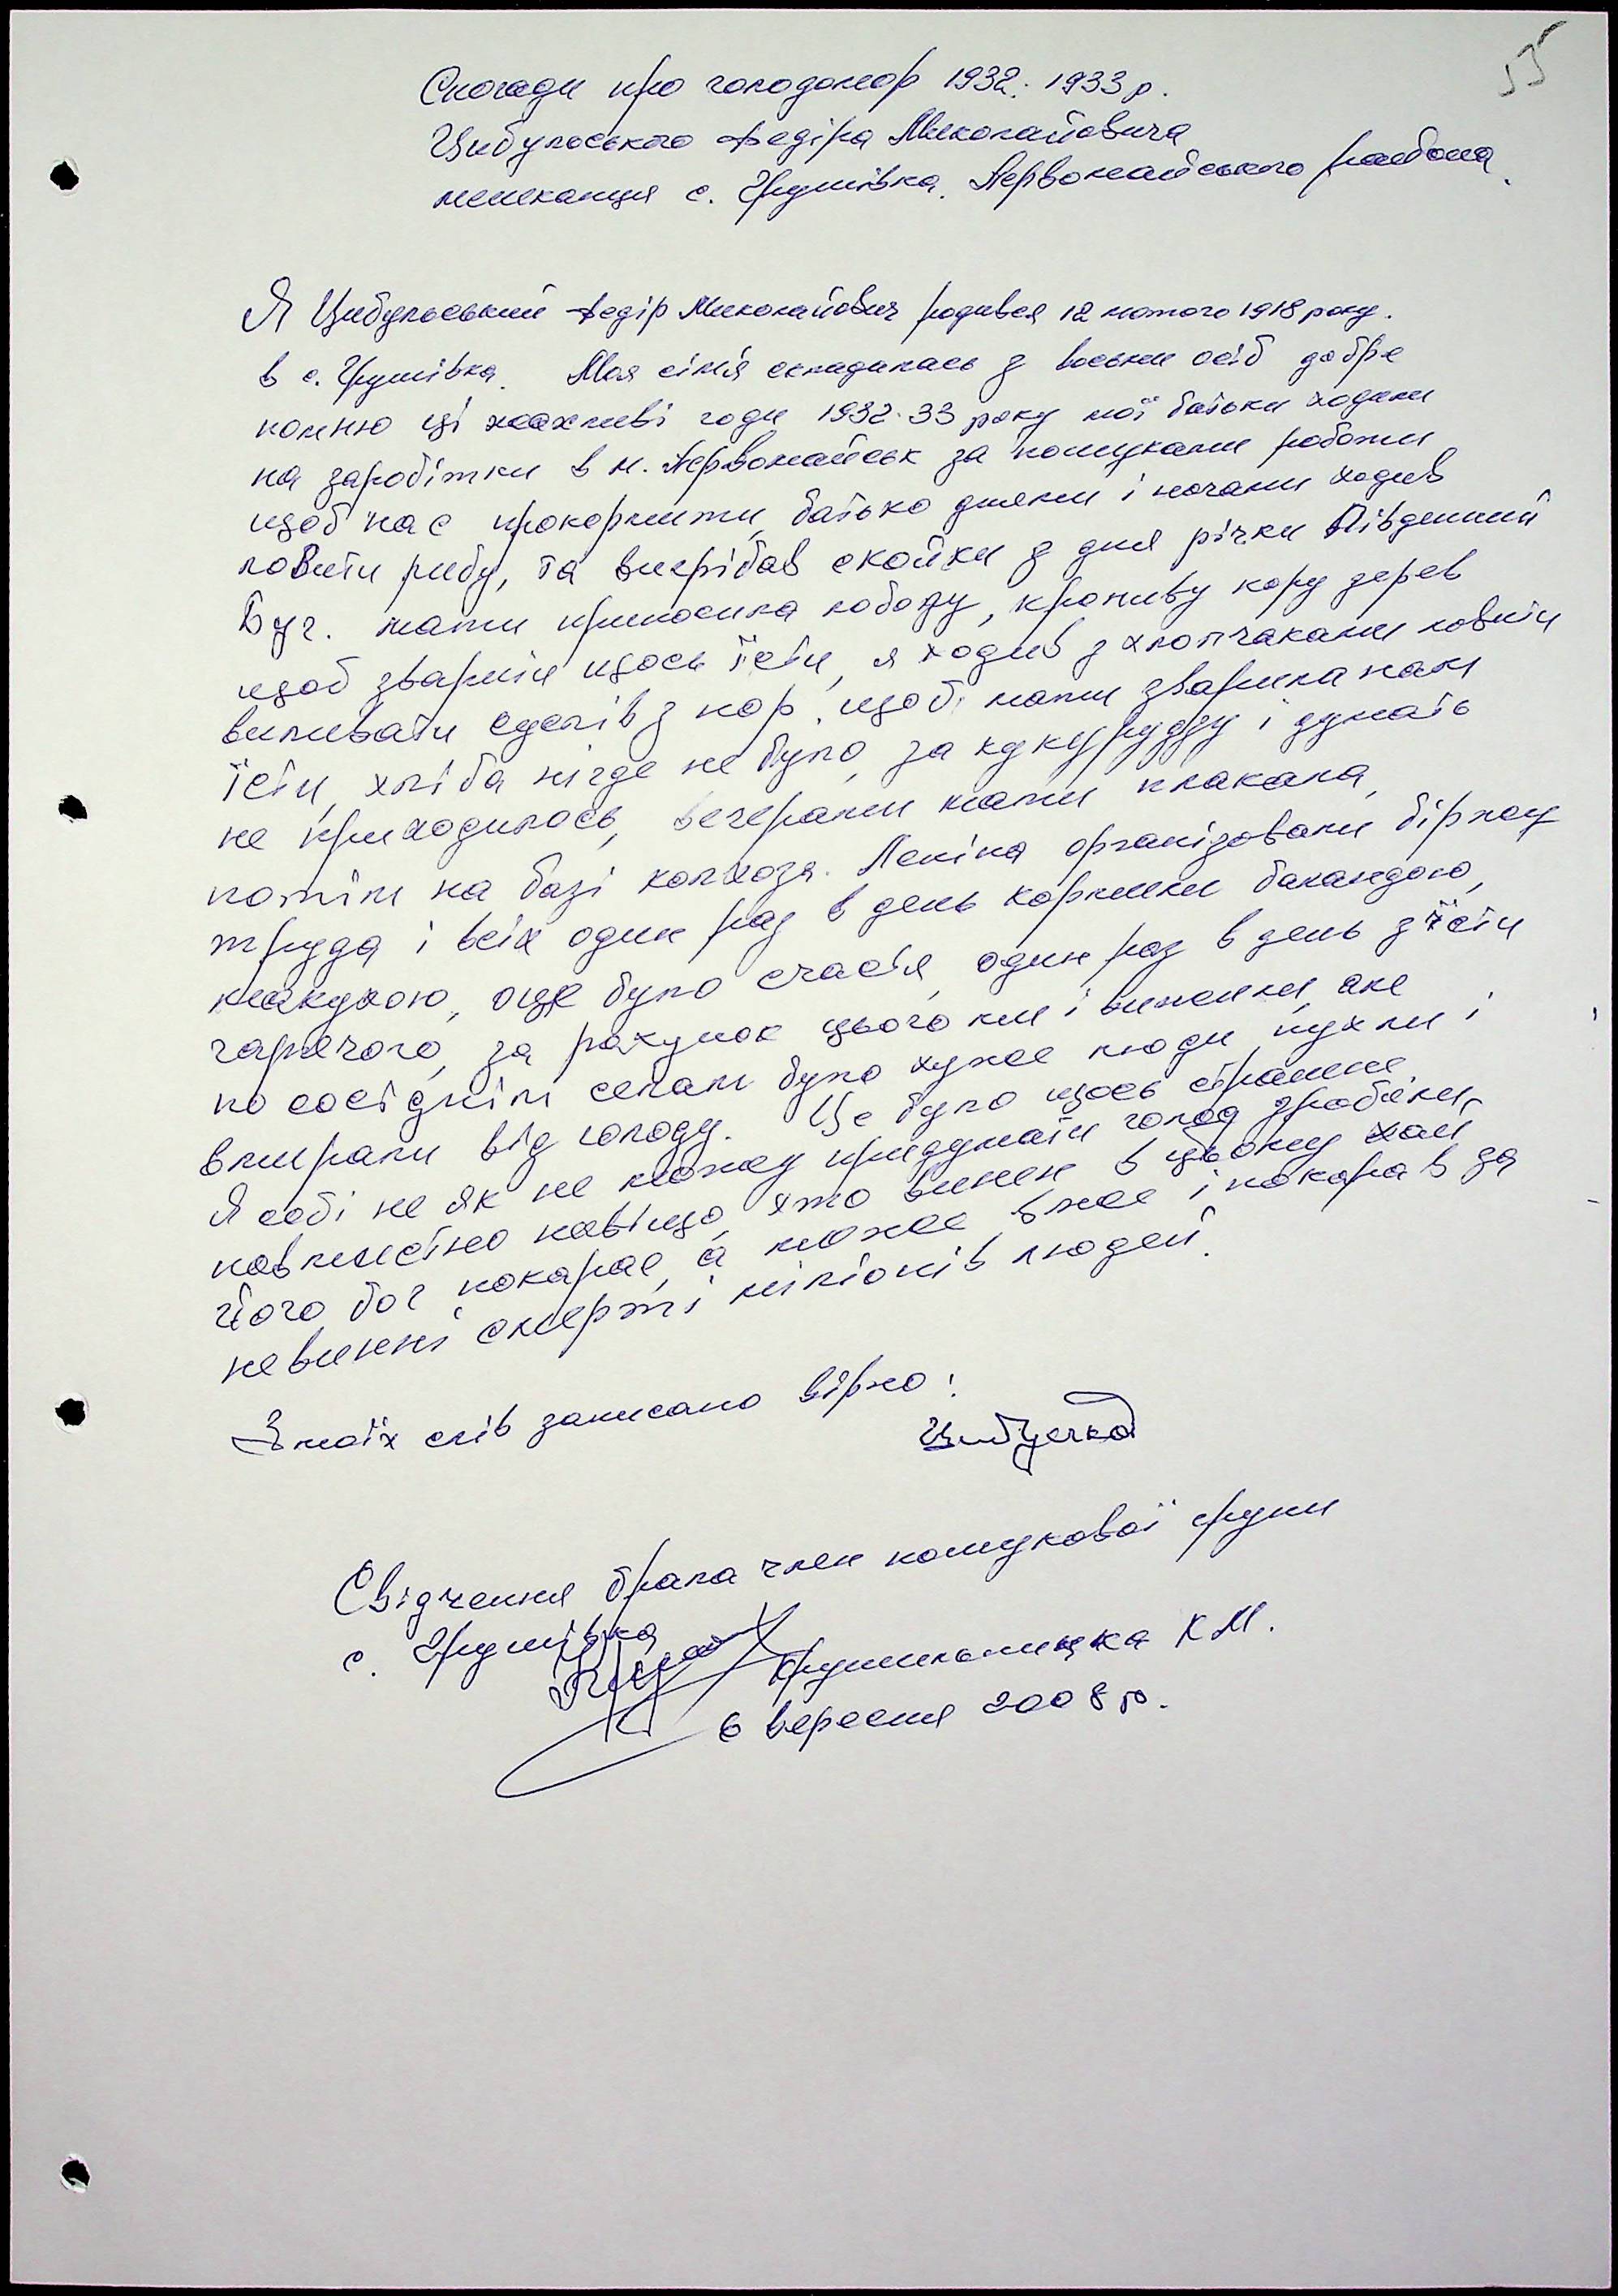 55
Спогади про голодомор 1932-1933 р.
Цибульського Федіра Миколайовича
мешканця с. Грушівка. Первомайського района.
Я Цибульський Федір Миколайович родився 12 лютого 1918 року.
в с. Грушівка. Моя сім'я складалась з восьми осіб добре
помню ці жахливі годи 1932-33 року мої батьки ходили
на заробітки в м. Первомайськ за пошуками роботи
щоб нас прокормити, батько днями і ночами ходив
ловити рибу, та вигрібав скойки з дня річки Південний
Буг. мати приносила лободу, кропиву кору дерев
щоб зварити щось їсти, я ходив з хлопчаками ловити
виливати суслів з нор, щоб мати зварила нам
їсти, хліба нігде не було, за кукурудзу і думать
не приходилось, вечерами мати плакала,
потім на базі колхоза. Леніна організовали біржу
труда і всіх один раз в день кормили баландою,
макухою, оце було счастя, один раз в день з'їсти
гарячого, за рахунок цього ми і вижили, але
по сосіднім селам було хуже люди пухли і
вмирали від голоду. Це було щось страшне.
Я собі не як не можу придумати голод зробили,
навмистно навіщо, хто винен в цьому хай
його бог покарає, а може вже і покарав за
невинні смерті міліонів людей.
З моїх слів записано вірно:
Свідчення брала член пошукової групи
с. Грушівка
Крушельницька К М.
6 вересня 2008 р.